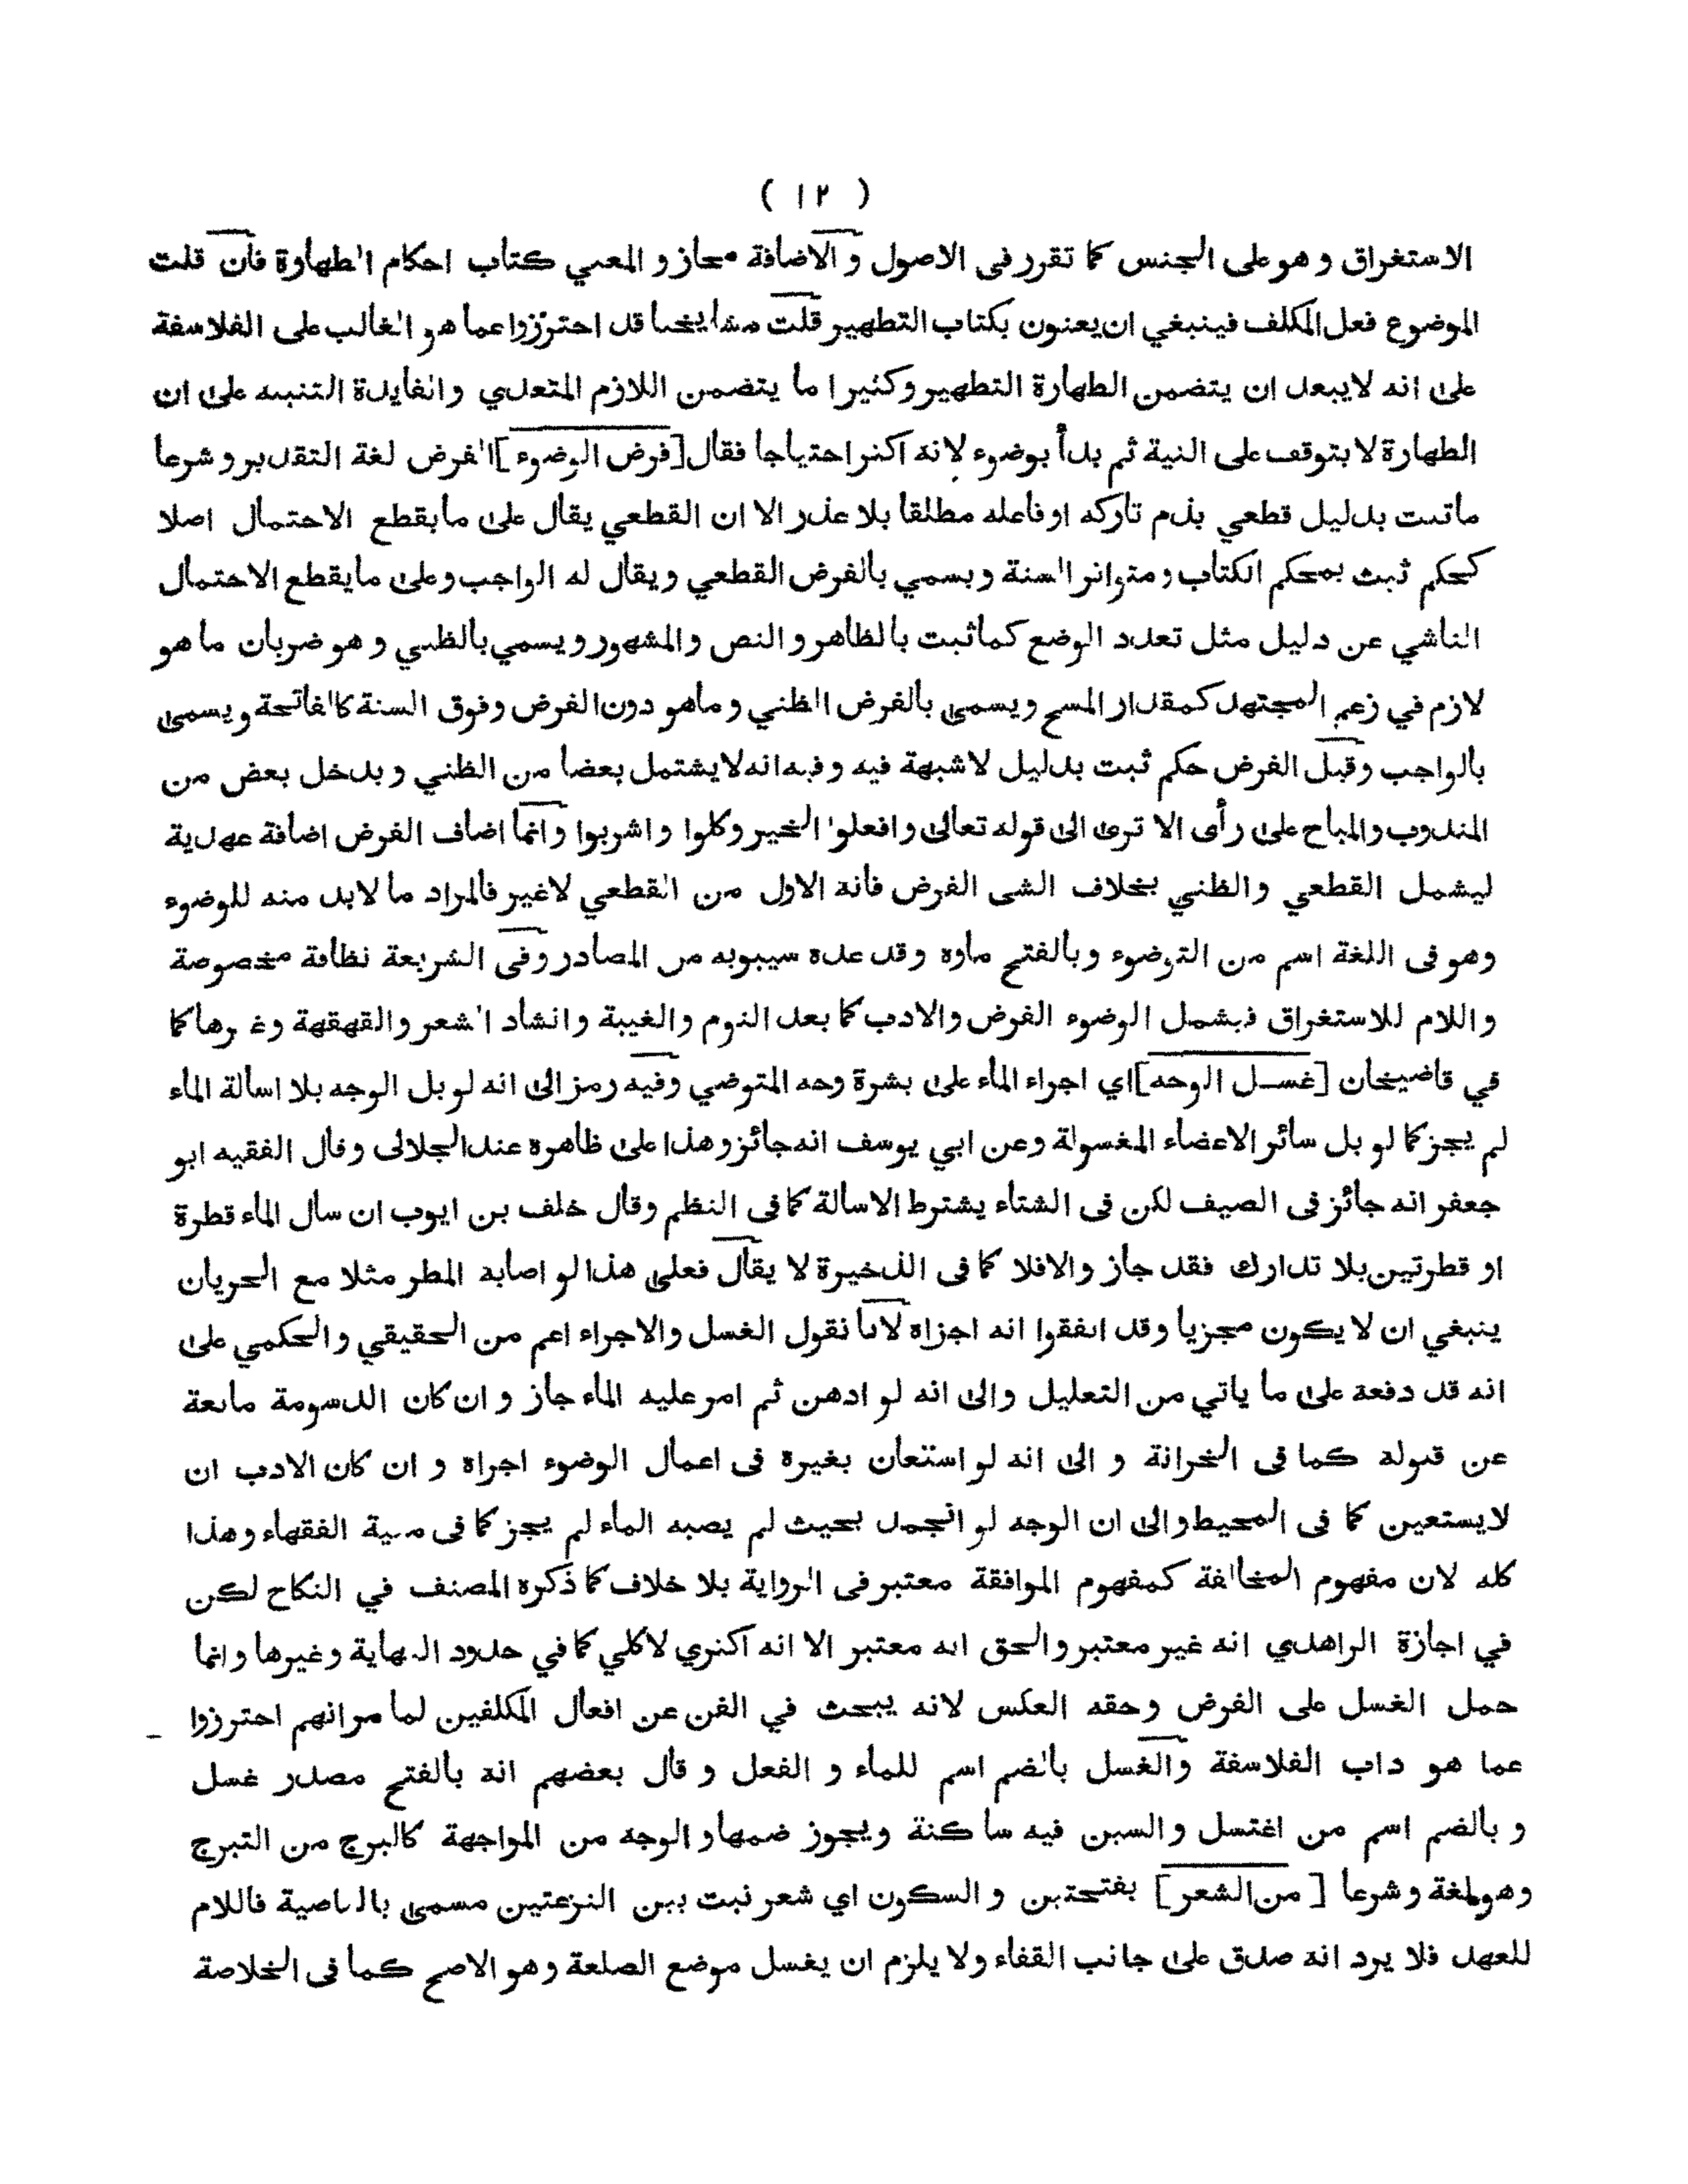 ( ١٢ )
الاستغراق و هو على الجنس كما تقرر فى الاصول و الاضافة مجاز و المعني كتاب احكام الطهارة فان قلت
الموضوع فعل المكلف فينبغي ان يعنون بكتاب التطهير قلت مشايخنا قد احترزوا عما هو الغالب على الفلاسفة
على انه لايبعد ان يتضمن الطهارة التطهير وكثيرا ما يتضمن اللازم المتعدي والفايدة التنبيه على ان
الطهارة لا يتوقف على النية ثم بدأ بوضوء لانه اكثر احتياجا فقال [فرض الوضوء] الفرض لغة التقدير و شرعا
ماثبت بدليل قطعي يذم تاركه اوفاعله مطلقا بلا عذر الا ان القطعي يقال على مايقطع الاحتمال اصلا
كحكم ثبت بمحكم الكتاب و متواتر السنة و يسمي بالفرض القطعي و يقال له الواجب و على مايقطع الاحتمال
الناشي عن دليل مثل تعدد الوضع كماثبت بالظاهر و النص والمشهور و يسمي بالظني و هو ضربان ما هو
لازم في زعم المجتهد كمقدار المسح ويسمى بالفرض الظني و ماهو دون الفرض وفوق السنة كالفاتحة و يسمى
بالواجب وقيل الفرض حكم ثبت بدليل لاشبهة فيه وفيه انه لايشتمل بعضا من الظني و يدخل بعض من
المندوب والمباح على رأى الا ترى الى قوله تعالى و افعلوا الخير وكلوا و اشربوا وانما اضاف الفرض اضافة عهدية
ليشمل القطعي والظني بخلاف الشى الفرض فانه الاول من القطعي لاغير فالمراد ما لابد منه للوضوء
وهو فى اللغة اسم من التوضوء وبالفتح ماوه وقد عده سيبويه من المصادر وفى الشريعة نظافة مخصوصة
و اللام للاستغراق فيشمل الوضوء الفرض والادب كما بعد النوم والغيبة وانشاد الشعر والقهقهة وغيرها كما
في قاضيخان [غسل الوجه] اي اجراء الماء على بشرة وجه المتوضي وفيه رمز الى انه لو بل الوجه بلا اسالة الماء
لم يجز كما لو بل سائر الاعضاء المغسولة وعن ابي يوسف انه جائز وهذا على ظاهره عند الجلالى وقال الفقيه ابو
جعفر انه جائز فى الصيف لكن فى الشتاء يشترط الاسالة كما فى النظم وقال خلف بن ايوب ان سال الماء قطرة
او قطرتين بلا تدارك فقد جاز والافلا كما فى الذخيرة لا يقال فعلى هذا لو اصابه المطر مثلا مع الجريان
ينبغي ان لا يكون مجزيا وقد اتفقوا انه اجزاه لانا نقول الغسل والاجراء اعم من الحقيقي والحكمي على
انه قد دفعة على ما ياتي من التعليل والى انه لو ادهن ثم امر عليه الماء جاز و ان كان الدسومة مانعة
عن قبوله كما فى الخزانة و الى انه لو استعان بغيرة فى اعمال الوضوء اجزاه و ان كان الادب ان
لايستعين كما فى المحيط والى ان الوجه لو انجمد بحيث لم يصبه الماء لم يجز كما فى منية الفقهاء وهذا
كله لان مفهوم المخالفة كمفهوم الموافقة معتبر فى الرواية بلا خلاف كما ذكره المصنف في النكاح لكن
في اجازة الزاهدي انه غير معتبر والحق انه معتبر الا انه اكثري لاكلي كما في حدود النهاية وغيرها وانما
حمل الغسل على الفرض وحقه العكس لانه يبحث في الفن عن افعال المكلفين لما مر انهم احترزوا
عما هو داب الفلاسفة والغسل بالضم اسم للماء و الفعل و قال بعضهم انه بالفتح مصدر غسل
و بالضم اسم من اغتسل والسين فيه ساكنة ويجوز ضمها و الوجه من المواجهة كالبرج من التبرج
وهو لغة وشرعا [من الشعر] بفتحتين و السكون اي شعر نبت بين النزعتين مسمى بالناصية فاللام
للعهد فلا يرد انه صدق على جانب القفاء ولا يلزم ان يغسل موضع الصلعة وهو الاصح كما فى الخلاصة